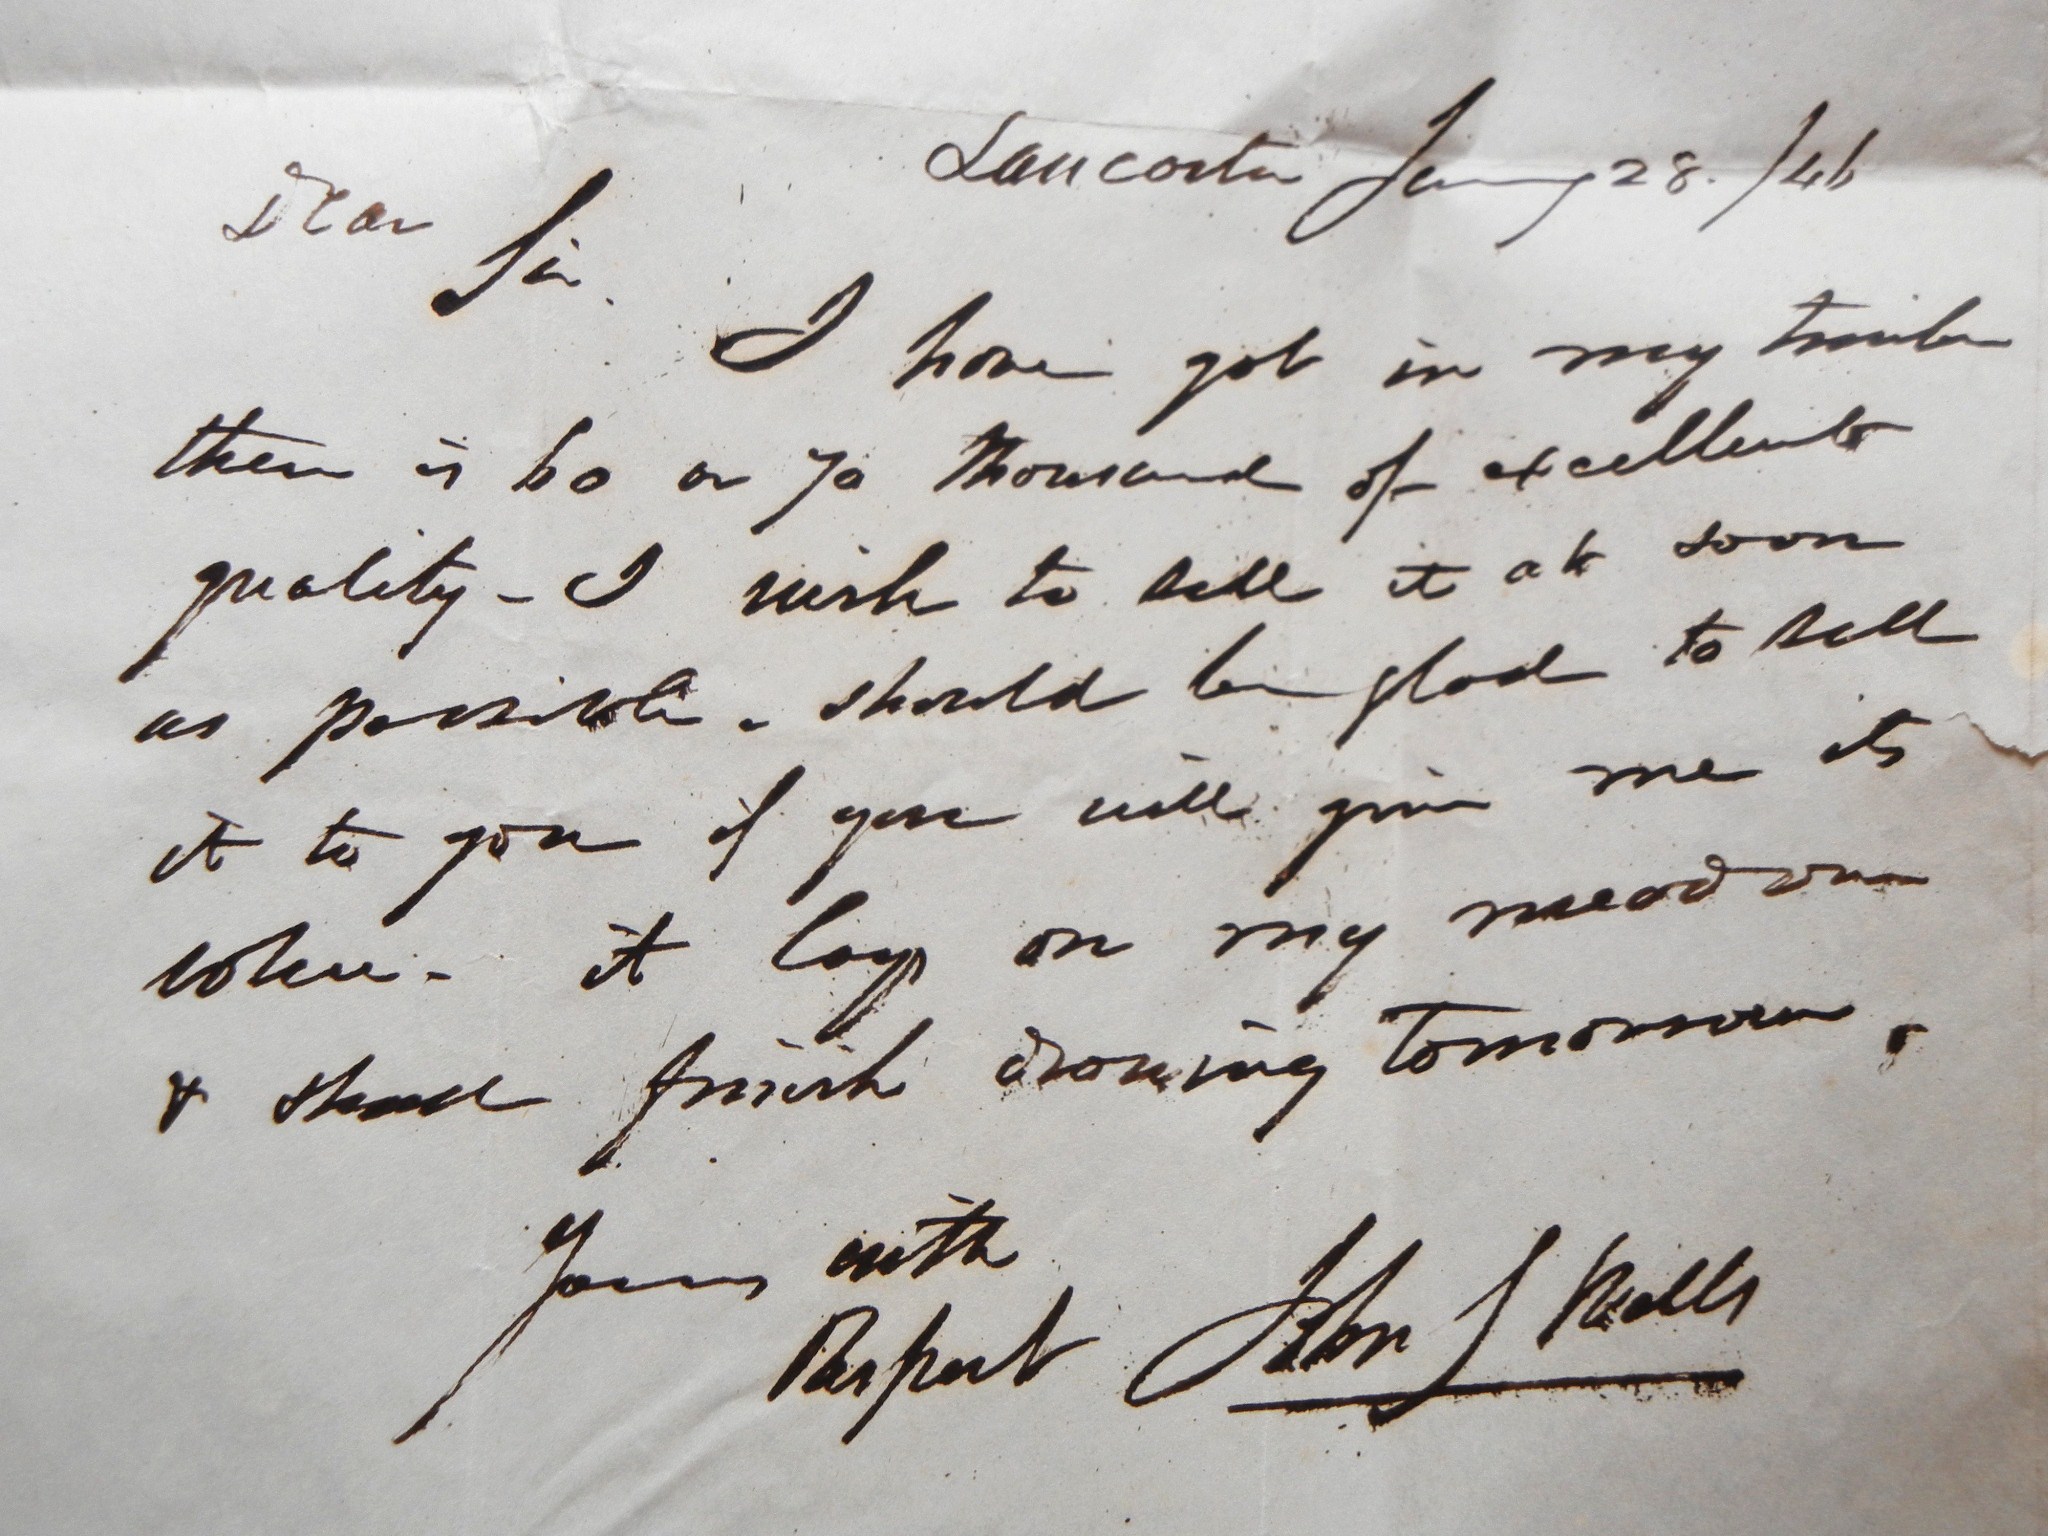 Lancaster Jany 28. /46
Dear Sir.
I have got in my timber
there is 60 or 70 thousand of excellent
quality - I wish to sell it as soon
as possible. should be glad to sell
it to you if you will give me its
value - it lays on my meadow
& shall finish drawing tomorrow.
Yours with
Respect John S Wells